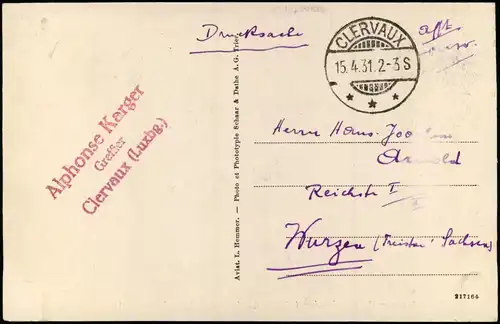 Drucksache
CLERVAUX
15.4.31.2-3S
Alphonse Karger
Greffier
Clervaux (Luxbg.)
Aviat. L. Hemmer. — Photo et Phototypie Schaar & Dathe A. G. Trier
Herrn Hans
Arnold
Reichstr I
Wurzen (Freistaat Sachsen)
217166